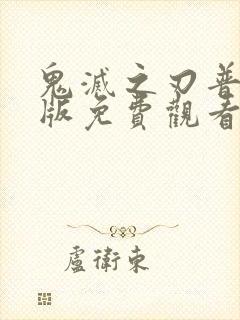 鬼滅之刃普
版免費觀看
盧衛東